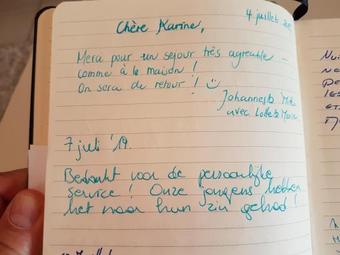 4 juillet
Chère Karine,
Merci pour un sejour très agréable –
comme à la maison !
On sera de retour ! ☺
Johannes &
avec
7 juli '19.
Bedankt voor de persoonlijke
service ! Onze jongens hebben
het naar hun zin gehad !